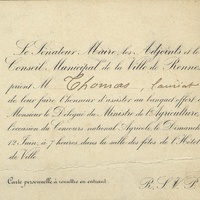 Le Sénateur Maire, les Adjoints et le
Conseil Municipal de la Ville de Rennes
prient M. Thomas, lauréat
de leur faire l'honneur d'assister au banquet offert à
Monsieur le Délégué du Ministre de l'Agriculture,
à l'occasion du Concours national Agricole, le Dimanche
12 Juin, à 7 heures dans la salle des fêtes de l'Hôtel
de Ville.
Carte personnelle à remettre en entrant.
R. S. V. P.